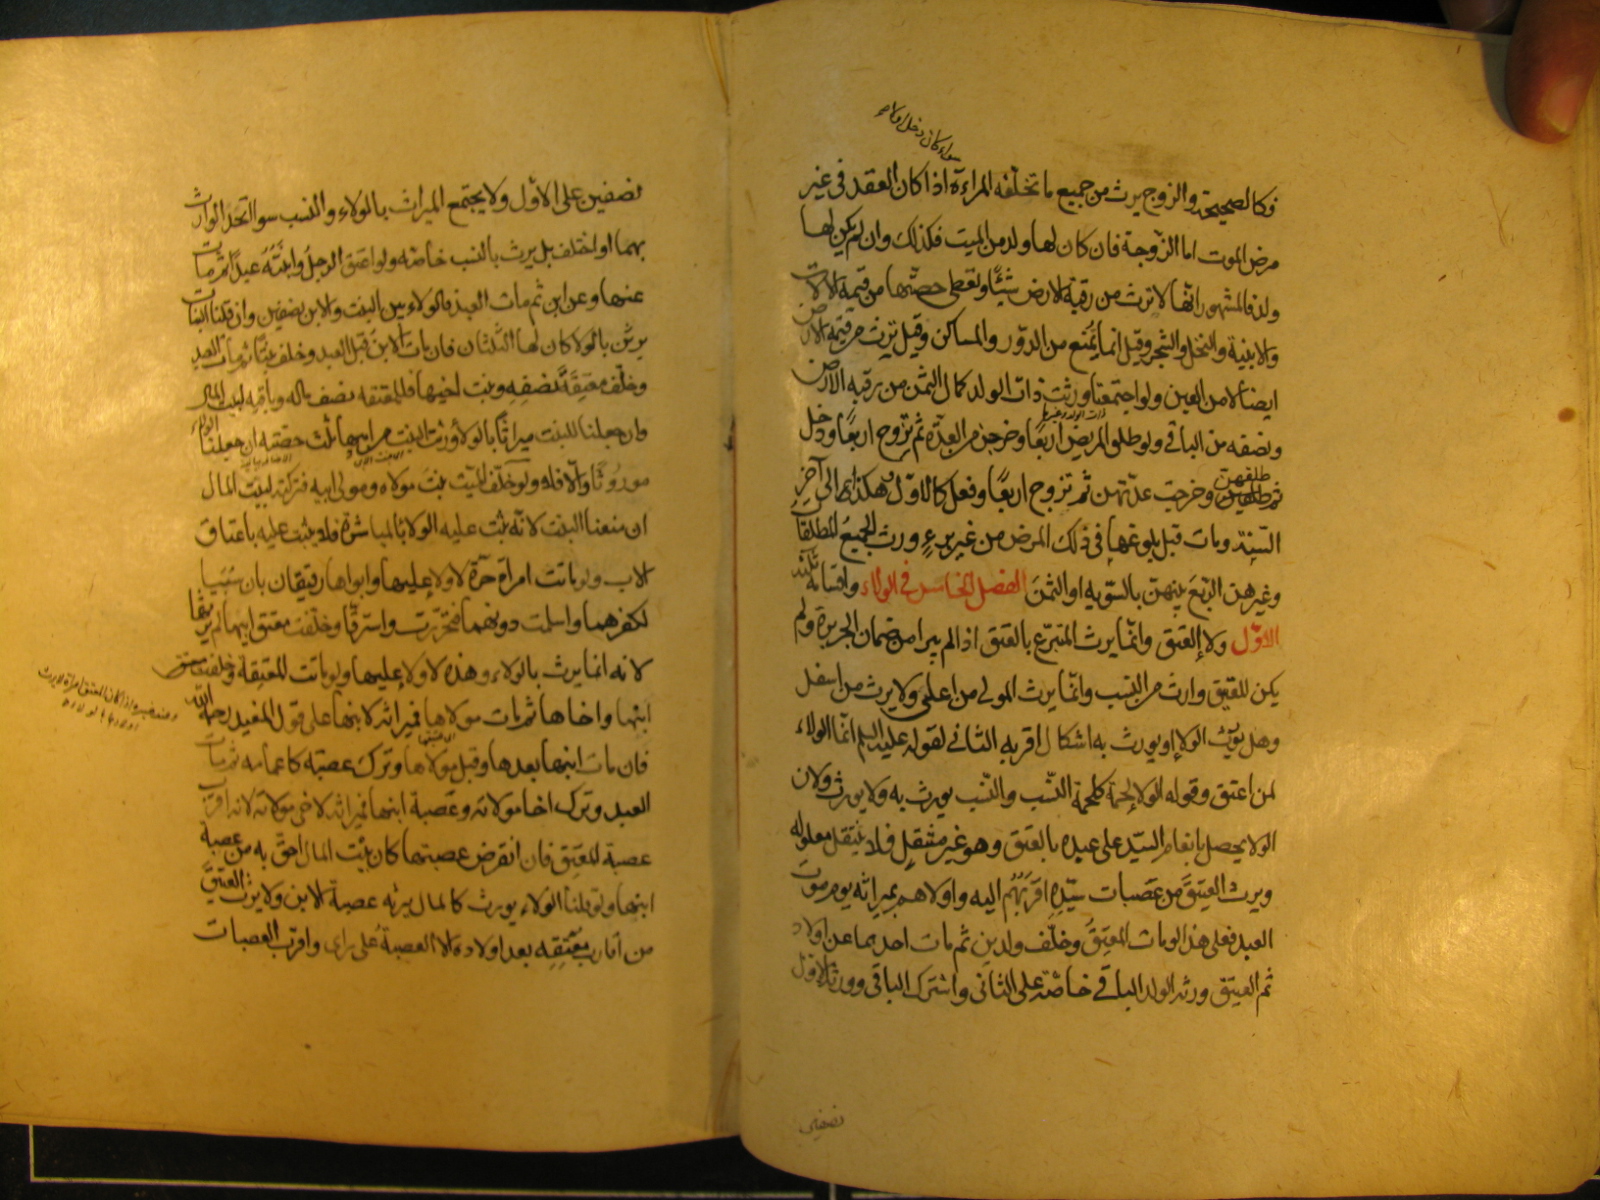 سواء كان دخل او لا
فكالصحيحة والزوج يرث من جميع ما تخلفه المراءة اذا كان العقد فى غير
مرض الموت اما الزوجة فان كان لها ولد من الميت فكذلك وان لم يكن لها
ولد فالمشهور انها لا ترث من رقبة الارض شيئا وتعطى حصتها من قيمة الالات
والابنية والنخل والشجر وقيل انما تمنع من الدور والمساكن وقيل ترث من قيمة الارض
ايضا لا من العين ولو اجتمعتا ورثت ذات الولد كمال الثمن من رقبة الارض
ذات الولد وغيرها
ونصفه من الباقى ولو طلق المريض اربعا وخرجن من العدة ثم تزوج اربعا ودخل
ثم طلقهن وخرجت عدتهن ثم تزوج اربعا وفعل كالاول وهكذا الى آخر
السنة ومات قبل بلوغها فى ذلك المرض من غير برء ورث الجميع المطلقات
وغيرهن الربع بينهن بالسوية او الثمن الفصل الخامس فى الولاء واقسامه ثلثة
الاول ولاء العتق وانما يرث المتبرع بالعتق اذا لم يبرا من ضمان الجريرة ولم
يكن للعتيق وارث من النسب وانما يرث المولى من اعلى ولا يرث من اسفل
وهل يورث الولاء او يورث به اشكال اقربه الثانى لقوله عليه السلم انما الولاء
لمن اعتق وقوله الولاء لحمة كلحمة النسب والنسب يورث به ولا يورث ولان
الولاء يحصل بانعام السيد على عبده بالعتق وهو غير منتقل فلا ينتقل معلوله
ويرث العتيق من عصبات سيده اقربهم اليه واولاهم بميراثه يوم موت
العبد فعلى هذا لو مات المعتق وخلف ولدين ثم مات احدهما عن اولاد
ثم العتيق ورثه الولد الباقى خاصة على الثانى واشترك الباقى وورثة الاول
نصفين
نصفين على الاول ولا يجتمع الميراث بالولاء والنسب سواء اتحد الوارث
بهما او اختلف بل يرث بالنسب خاصة ولو اعتق الرجل وابنته عبدا ثم مات
عنها وعن ابن ثم مات العبد فالولاء بين البنت والابن نصفين وان قلنا البنات
يرثن بالولاء كان لها الثلثان فان مات الابن قبل العبد وخلف بنتا ثم مات العبد
وخلف معتقة نصفه وبنت اخيها فللمعتقة نصف ماله وباقيه لبيت المال
وان جعلنا للبنت ميراثا بالولاء ورثت البنت من ابيها ثلث حصته ان جعلنا الولاء
موروثا والا فلا ولو خلف الميت بنت مولاه ومولى ابيه فتركته لبيت المال
ان منعنا البنت لانه ثبت عليه الولاء بالمباشرة فلا يثبت عليه باعتاق
الاب ولو ماتت امراة حرة لا ولاء عليها وابواها رقيقان بان سبيا
لكفرهما واسلمت دونهما فتحررت واسترقا وخلفت معتق ابيها لم يرثها
لانه انما يرث بالولاء وهذه لا ولاء عليها ولو ماتت المعتقة وخلفت
ابنها واخاها ثم مات مولاها فميراثه لابنها على قول المفيد رحمه الله
فان مات ابنها بعدها وقبل مولاها وترك عصبة كاعمامه ثم مات
العبد وترك اخا مولاته وعصبة ابنها فميراثه لاخى مولاته لانه اقرب
عصبة المعتق فان انقرض عصبتها كان بيت المال احق به من عصبة
ابنها ولو قلنا الولاء يورث كالمال يرثه عصبة الابن ولا يرث العتيق
من اقارب معتقه بعد اولاده الا العصبة على راى واقرب العصبات